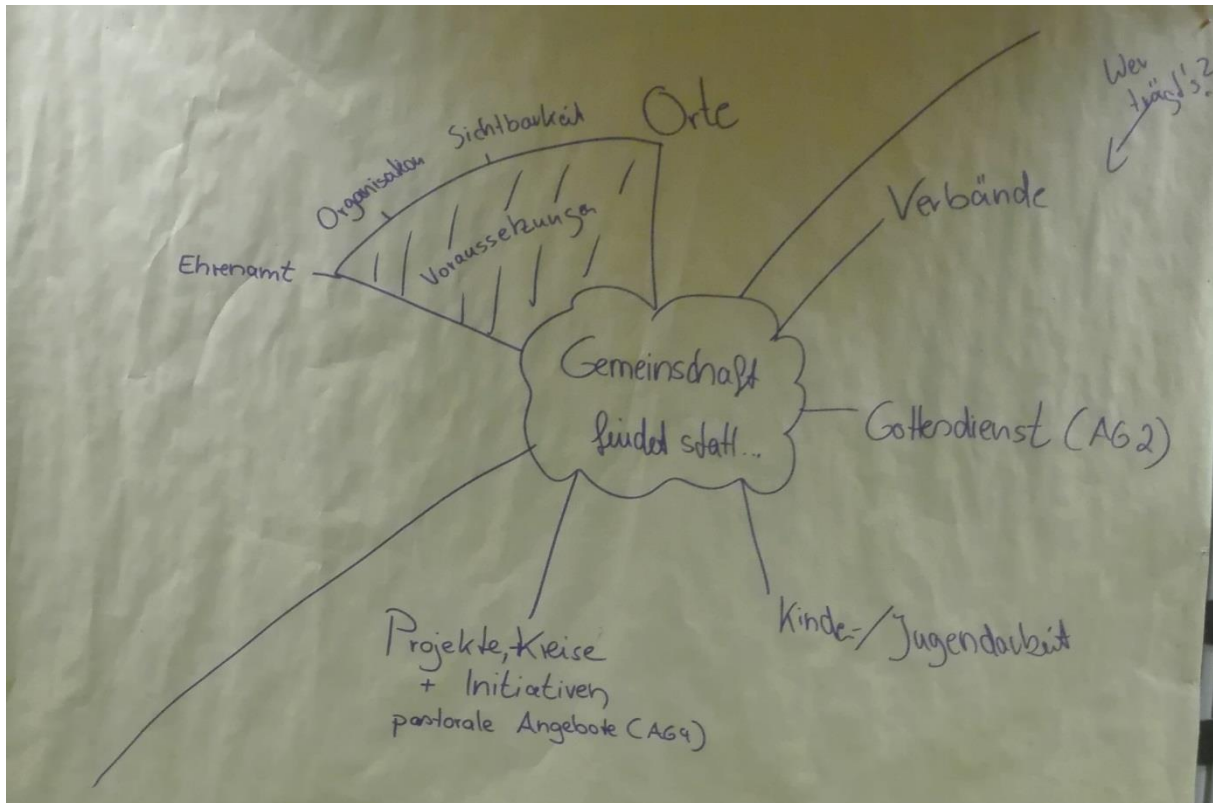 Orte
Sichtbarkeit
Organisation
Ehrenamt
Voraussetzungen
Wer
trägt's?
Verbände
Gemeinschaft
findet statt...
Gottesdienst (AG2)
Kinder-/Jugendarbeit
Projekte, Kreise
+ Initiativen,
pastorale Angebote (AG4)